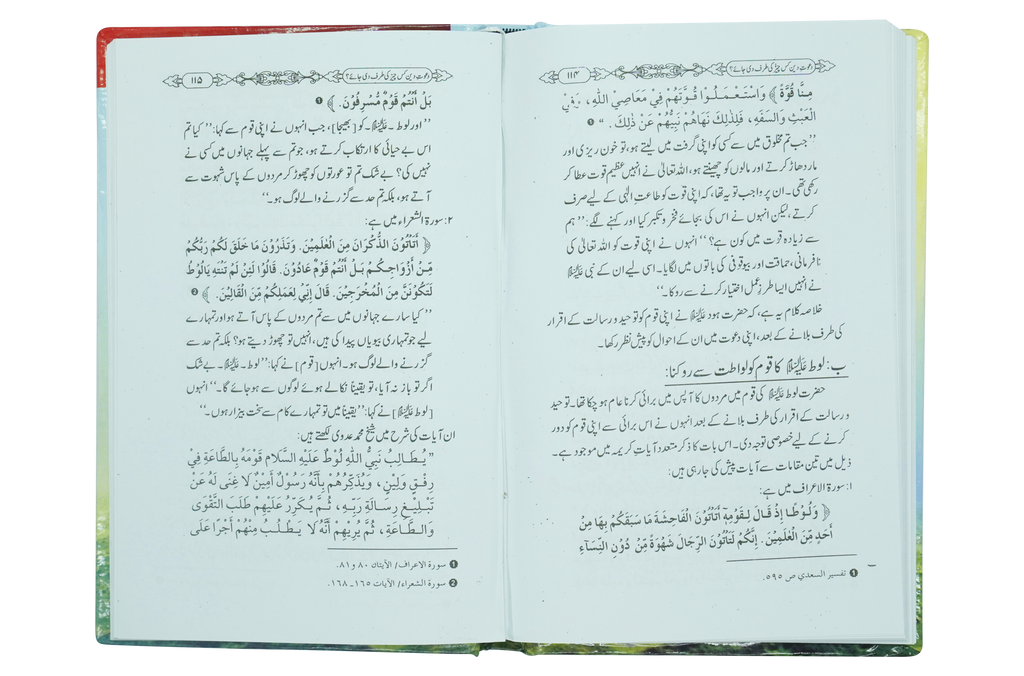 دعوت دین کس چیز کی طرف دی جائے؟
۱۱۴
مِنَّا قُوَّةً ﴾ وَاسْتَعْمَلُوْا قُوَّتَهُمْ فِيْ مَعَاصِي اللّٰهِ، وَفِيْ
الْعَبْثِ وَالسَّفَهِ، فَلِذٰلِكَ نَهَاهُمْ نَبِيُّهُمْ عَنْ ذٰلِكَ . “ ❶
’’جب تم مخلوق میں سے کسی کو اپنی گرفت میں لیتے ہو، تو خون ریزی اور
مار دھاڑ کرتے اور مالوں کو چھینتے ہو، اللہ تعالیٰ نے انہیں عظیم قوت عطا کر
رکھی تھی۔ ان پر واجب تو یہ تھا، کہ اپنی قوت کو طاعتِ الٰہی کے لیے صرف
کرتے، لیکن انہوں نے اس کی بجائے فخر و تکبر کیا اور کہنے لگے: ’’ہم
سے زیادہ قوت میں کون ہے؟‘‘ انہوں نے اپنی قوت کو اللہ تعالیٰ کی
نافرمانی، حماقت اور بیوقوفی کی باتوں میں لگایا۔ اسی لیے ان کے نبی علیہ السلام
نے انہیں ایسا طرزِ عمل اختیار کرنے سے روکا۔‘‘
خلاصہ کلام یہ ہے، کہ حضرت ہود علیہ السلام نے اپنی قوم کو توحید و رسالت کے اقرار
کی طرف بلانے کے بعد، اپنی دعوت میں ان کے احوال کو پیش نظر رکھا۔
ب: لوط علیہ السلام کا قوم کو لواطت سے روکنا:
حضرت لوط علیہ السلام کی قوم میں مردوں کا آپس میں برائی کرنا عام ہو چکا تھا۔ توحید
و رسالت کے اقرار کی طرف بلانے کے بعد انہوں نے اس برائی سے اپنی قوم کو دور
کرنے کے لیے خصوصی توجہ دی۔ اس بات کا ذکر متعدد آیاتِ کریمہ میں موجود ہے۔
ذیل میں تین مقامات سے آیات پیش کی جا رہی ہیں:
۱: سورۃ الاعراف میں ہے:
﴿ وَلُوْطًا اِذْ قَالَ لِقَوْمِهٖٓ اَتَاْتُوْنَ الْفَاحِشَةَ مَا سَبَقَكُمْ بِهَا مِنْ
أَحَدٍ مِّنَ الْعٰلَمِيْنَ. اِنَّكُمْ لَتَاْتُوْنَ الرِّجَالَ شَهْوَةً مِّنْ دُوْنِ النِّسَآءِ
❶ تفسير السعدي ص ٥٩٥.
دعوت دین کس چیز کی طرف دی جائے؟
۱۱۵
بَلْ اَنْتُمْ قَوْمٌ مُّسْرِفُوْنَ. ﴾ ❶
’’اور لوط ۔علیہ السلام۔ کو [بھیجا]، جب انہوں نے اپنی قوم سے کہا: ’’کیا تم
اس بے حیائی کا ارتکاب کرتے ہو، جو تم سے پہلے جہانوں میں کسی نے
نہیں کی؟ بے شک تم تو عورتوں کو چھوڑ کر مردوں کے پاس شہوت سے
آتے ہو، بلکہ تم حد سے گزرنے والے لوگ ہو۔‘‘
۲: سورۃ الشعراء میں ہے:
﴿ اَتَاْتُوْنَ الذُّكْرَانَ مِنَ الْعٰلَمِيْنَ. وَتَذَرُوْنَ مَا خَلَقَ لَكُمْ رَبُّكُمْ
مِّنْ اَزْوَاجِكُمْ بَلْ اَنْتُمْ قَوْمٌ عَادُوْنَ. قَالُوْا لَئِنْ لَّمْ تَنْتَهِ يٰلُوْطُ
لَتَكُوْنَنَّ مِنَ الْمُخْرَجِيْنَ. قَالَ اِنِّيْ لِعَمَلِكُمْ مِّنَ الْقَالِيْنَ. ﴾ ❷
’’کیا سارے جہانوں میں سے تم مردوں کے پاس آتے ہو اور تمہارے
لیے جو تمہاری بیویاں پیدا کی ہیں، انہیں تو چھوڑ دیتے ہو؟ بلکہ تم حد سے
گزرنے والے لوگ ہو۔ انہوں [قوم] نے کہا: ’’لوط ۔علیہ السلام۔ بے شک
اگر تو باز نہ آیا، تو یقیناً نکالے ہوئے لوگوں سے ہو جائے گا۔‘‘ انہوں
[لوط علیہ السلام] نے کہا: ’’یقیناً میں تو تمہارے کام سے سخت بیزار ہوں۔‘‘
ان آیات کی شرح میں شیخ محمد عدوی لکھتے ہیں:
”يُطَالِبُ نَبِيُّ اللّٰهِ لُوْطٌ عَلَيْهِ السَّلَامِ قَوْمَهُ بِالطَّاعَةِ فِيْ
رِفْقٍ وَلِيْنٍ، وَيُذَكِّرُهُمْ بِأَنَّهُ رَسُوْلٌ أَمِيْنٌ لَا غِنٰى لَهُ عَنْ
تَبْلِيْغِ رِسَالَةِ رَبِّهِ، ثُمَّ يُكَرِّرُ عَلَيْهِمْ طَلَبَ التَّقْوٰى
وَالطَّاعَةِ، ثُمَّ يُرِيْهِمْ أَنَّهُ لَا يَطْلُبُ مِنْهُمْ أَجْرًا عَلٰى
❶ سورة الاعراف/ الآيتان ٨٠ و ٨١.
❷ سورة الشعراء/ الآيات ١٦٥ـ١٦٨.